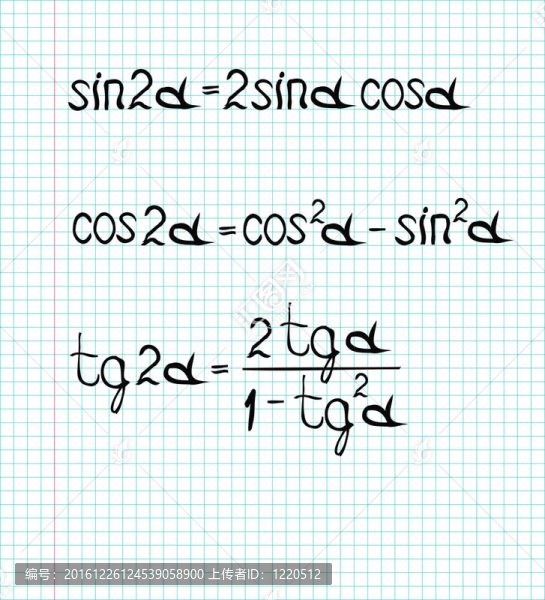 sin2α=2sinα cosα
cos2α=cos²α-sin²α
tg2α=
2tgα
1-tg²α
编号：20161226124539058900 上传者ID：1220512